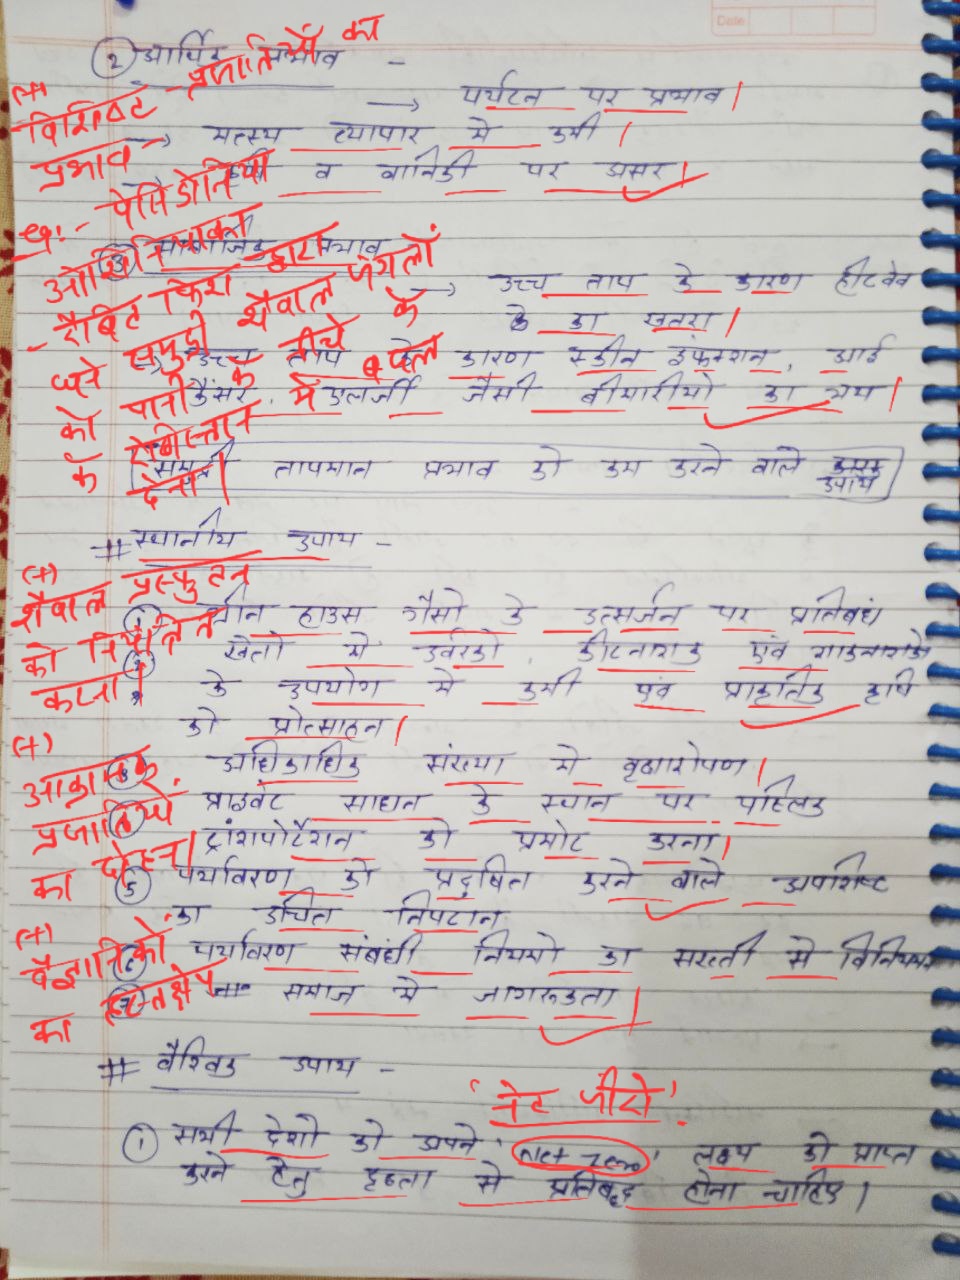 Date
② आर्थिक प्रभाव -
→ पर्यटन पर प्रभाव।
→ मत्स्य व्यापार मे कमी।
व वानिकी पर असर।
③ सामाजिक प्रभाव
→ उच्च ताप के कारण हीटवेव
के का खतरा।
उच्च ताप के कारण स्कीन इंफेक्शन, आई
कैंसर, एलर्जी जैसी बीमारीयो का भय।
समुद्री तापमान प्रभाव को कम करने वाले उपाय
# स्थानीय उपाय -
① ग्रीन हाउस गैसो के उत्सर्जन पर प्रतिबंध
② खेतो मे उर्वरको, कीटनाशक एवं शाकनाशको
के उपयोग मे कमी एवं प्राकृतिक कृषि
को प्रोत्साहन।
③ अधिकाधिक संख्या मे वृक्षारोपण।
④ प्राइवेट साधन के स्थान पर पब्लिक
ट्रांसपोर्टेशन को प्रमोट करना।
⑤ पर्यावरण को प्रदूषित करने वाले अपशिष्ट
का उचित निपटान
⑥ पर्यावरण संबंधी नियमो का सख्ती से विनियमन
⑦ समाज मे जागरूकता।
# वैश्विक उपाय -
① सभी देशो को अपने 'Net Zero' लक्ष्य को प्राप्त
करने हेतु दृढता से प्रतिबद्ध होना चाहिए।
(+)
विशिष्ट प्रजातियों का
प्रभाव
उदा:- पेसिडोनिया
ओशिनिका
- रैबिट फिश द्वारा
घने समुद्री शैवाल जंगलों
को पानी के नीचे के
के रेगिस्तान में बदल
देना।
(+)
शैवाल प्रस्फुटन
को नियंत्रित
करना।
(+)
आक्रामक
प्रजातियों
का दोहन।
(+)
वैज्ञानिकों
का हस्तक्षेप
'नेट जीरो'